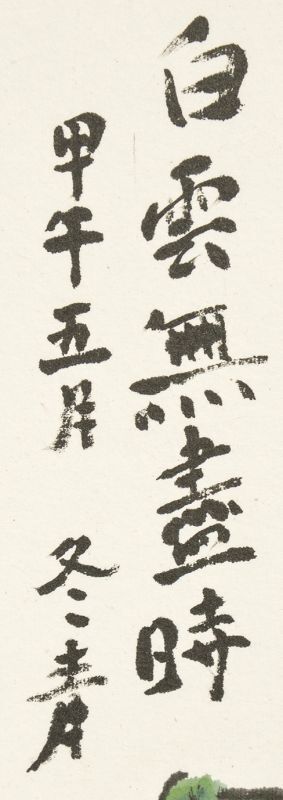 白雲無盡時
甲午五月 冬青